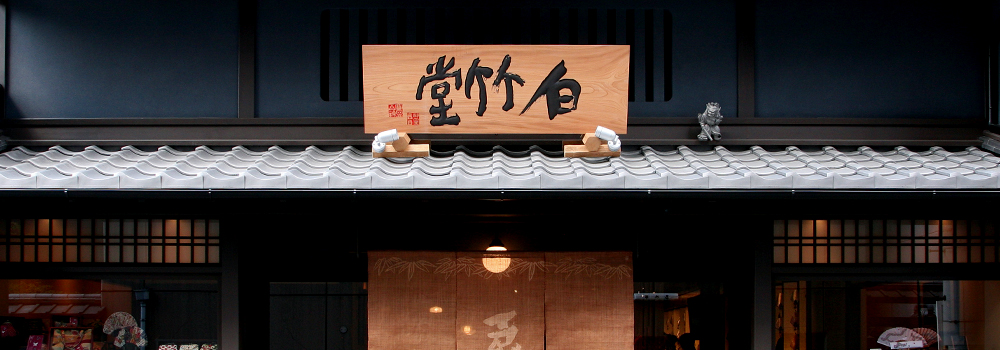 白竹堂